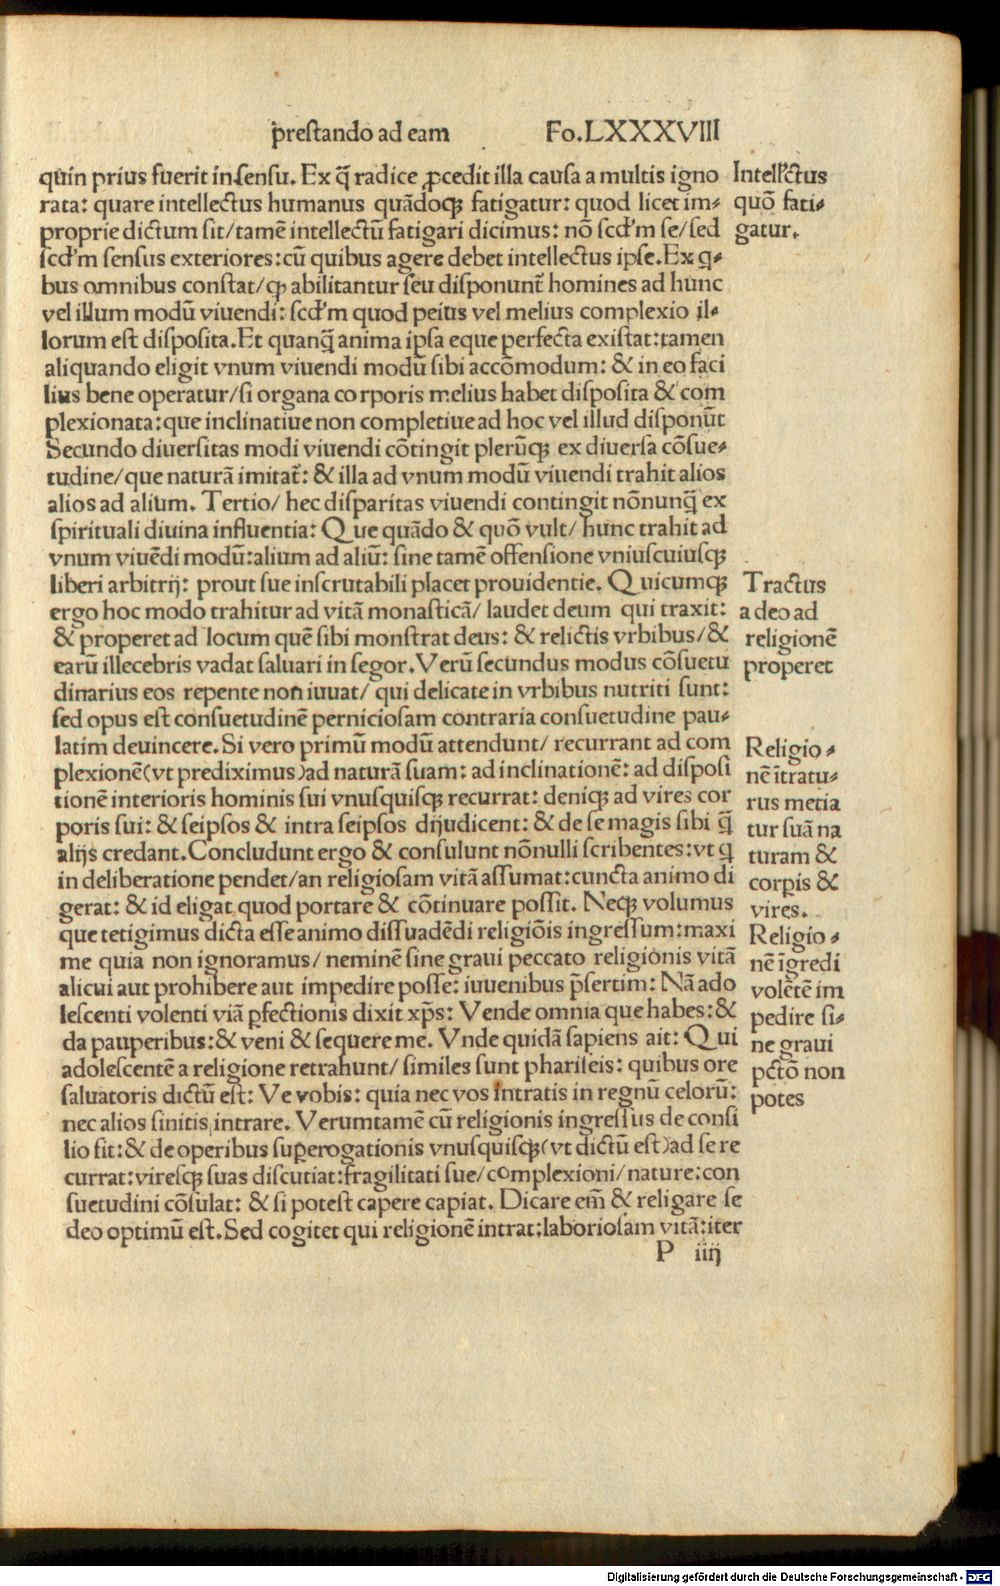 prestando ad eam Fo.LXXXVIII
quin prius fuerit in sensu. Ex q̃ radice ꝓcedit illa causa a multis igno
rata: quare intellectus humanus quãdoqꝫ fatigatur: quod licet im⸗
proprie dictum sit/tamẽ intellectũ fatigari dicimus: nõ scd'm se/sed
scd'm sensus exteriores:cũ quibus agere debet intellectus ipse. Ex q⸗
bus omnibus constat/qꝫ abilitantur seu disponunt̃ homines ad hunc
vel illum modũ viuendi: scd'm quod peius vel melius complexio il⸗
lorum est disposita. Et quanq̃ anima ipsa eque perfecta existat:tamen
aliquando eligit vnum viuendi modũ sibi accõmodum: & in eo faci
lius bene operatur/si organa corporis melius habet disposita & com
plexionata:que inclinatiue non completiue ad hoc vel illud disponũt
Secundo diuersitas modi viuendi cõtingit plerũqꝫ ex diuersa cõsue⸗
tudine/que naturã imitat̃: & illa ad vnum modũ viuendi trahit alios
alios ad alium. Tertio/ hec disparitas viuendi contingit nõnunq̃ ex
spirituali diuina influentia: Que quãdo & quõ vult/ hunc trahit ad
vnum viuẽdi modũ:alium ad aliũ: sine tamẽ offensione vniuscuiusqꝫ
liberi arbitrij: prout sue inscrutabili placet prouidentie. Quicumqꝫ
ergo hoc modo trahitur ad vitã monasticã/ laudet deum qui traxit:
& properet ad locum quẽ sibi monstrat deus: & relictis vrbibus/&
earũ illecebris vadat saluari in segor. Verũ secundus modus cõsuetu
dinarius eos repente non iuuat/ qui delicate in vrbibus nutriti sunt:
sed opus est consuetudinẽ perniciosam contraria consuetudine pau⸗
latim deuincere. Si vero primũ modũ attendunt/ recurrant ad com
plexionẽ(vt prediximus)ad naturã suam: ad inclinationẽ: ad disposi
tionẽ interioris hominis sui vnusquisqꝫ recurrat: deniqꝫ ad vires cor
poris sui: & seipsos & intra seipsos dijudicent: & de se magis sibi q̃
alijs credant. Concludunt ergo & consulunt nõnulli scribentes:vt q
in deliberatione pendet/an religiosam vitã assumat:cuncta animo di
gerat: & id eligat quod portare & cõtinuare possit. Neqꝫ volumus
que tetigimus dicta esse animo dissuadẽdi religiõis ingressum:maxi
me quia non ignoramus/ neminẽ sine graui peccato religionis vitã
alicui aut prohibere aut impedire posse: iuuenibus p̃sertim: Nã ado
lescenti volenti viã ꝑfectionis dixit xp̃s: Vende omnia que habes:&
da pauperibus:& veni & sequere me. Vnde quidã sapiens ait: Qui
adolescentẽ a religione retrahunt/ similes sunt phariseis: quibus ore
saluatoris dictũ est: Ve vobis: quia nec vos intratis in regnũ celorũ:
nec alios sinitis intrare. Verumtamẽ cũ religionis ingressus de consi
lio sit:& de operibus suꝑerogationis vnusquisqꝫ(vt dictũ est)ad se re
currat:viresqꝫ suas discutiat:fragilitati sue/complexioni/nature:con
suetudini cõsulat: & si potest capere capiat. Dicare em̃ & religare se
deo optimũ est. Sed cogitet qui religionẽ intrat:laboriosam vitã:iter
P iiij
Intell'ctus
quõ fati⸗
gatur.
Tractus
a deo ad
religionẽ
properet
Religio⸗
nẽ ĩtratu⸗
rus metia
tur suã na
turam &
corpis &
vires.
Religio⸗
nẽ ĩgredi
volẽtẽ im
pedire si⸗
ne graui
pctõ non
potes
Digitalisierung gefördert durch die Deutsche Forschungsgemeinschaft - DFG